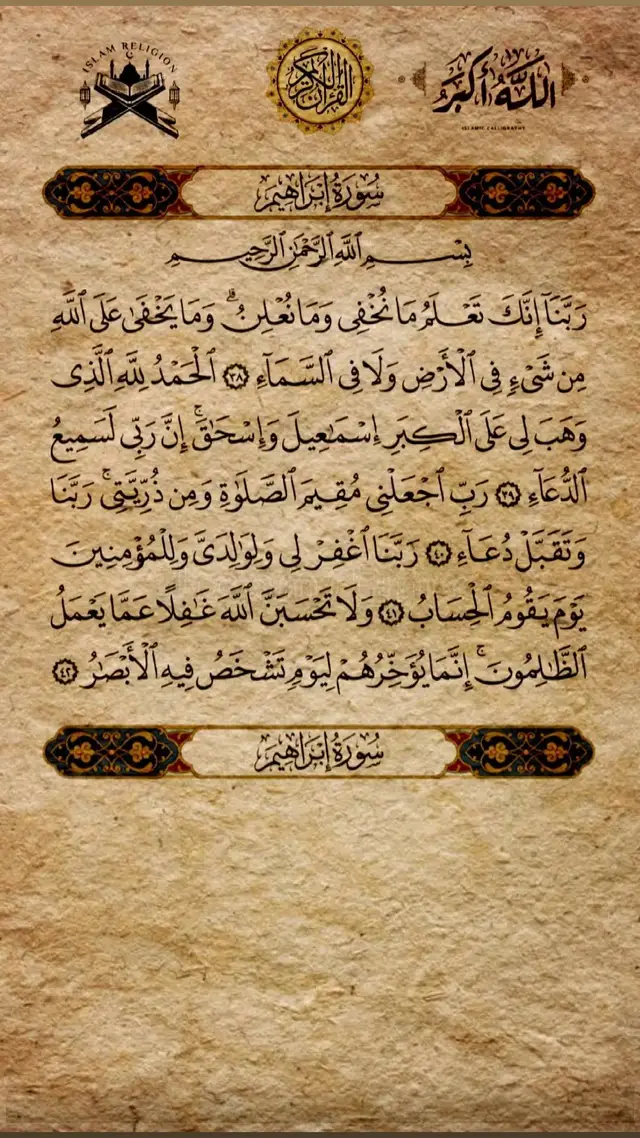 ISLAM RELIGION
القرآن الكريم
الله أكبر
ISLAMIC CALLIGRAPHY
سُورَةُ إِبْرَاهِيمَ
بِسْمِ ٱللَّهِ ٱلرَّحْمَٰنِ ٱلرَّحِيمِ
رَبَّنَآ إِنَّكَ تَعْلَمُ مَا نُخْفِى وَمَا نُعْلِنُ ۗ وَمَا يَخْفَىٰ عَلَى ٱللَّهِ
مِن شَىْءٍ فِى ٱلْأَرْضِ وَلَا فِى ٱلسَّمَآءِ ٣٨ ٱلْحَمْدُ لِلَّهِ ٱلَّذِى
وَهَبَ لِى عَلَى ٱلْكِبَرِ إِسْمَٰعِيلَ وَإِسْحَٰقَ ۚ إِنَّ رَبِّى لَسَمِيعُ
ٱلدُّعَآءِ ٣٩ رَبِّ ٱجْعَلْنِى مُقِيمَ ٱلصَّلَوٰةِ وَمِن ذُرِّيَّتِى ۚ رَبَّنَا
وَتَقَبَّلْ دُعَآءِ ٤٠ رَبَّنَا ٱغْفِرْ لِى وَلِوَٰلِدَىَّ وَلِلْمُؤْمِنِينَ
يَوْمَ يَقُومُ ٱلْحِسَابُ ٤١ وَلَا تَحْسَبَنَّ ٱللَّهَ غَٰفِلًا عَمَّا يَعْمَلُ
ٱلظَّٰلِمُونَ ۚ إِنَّمَا يُؤَخِّرُهُمْ لِيَوْمٍ تَشْخَصُ فِيهِ ٱلْأَبْصَٰرُ ٤٢
سُورَةُ إِبْرَاهِيمَ